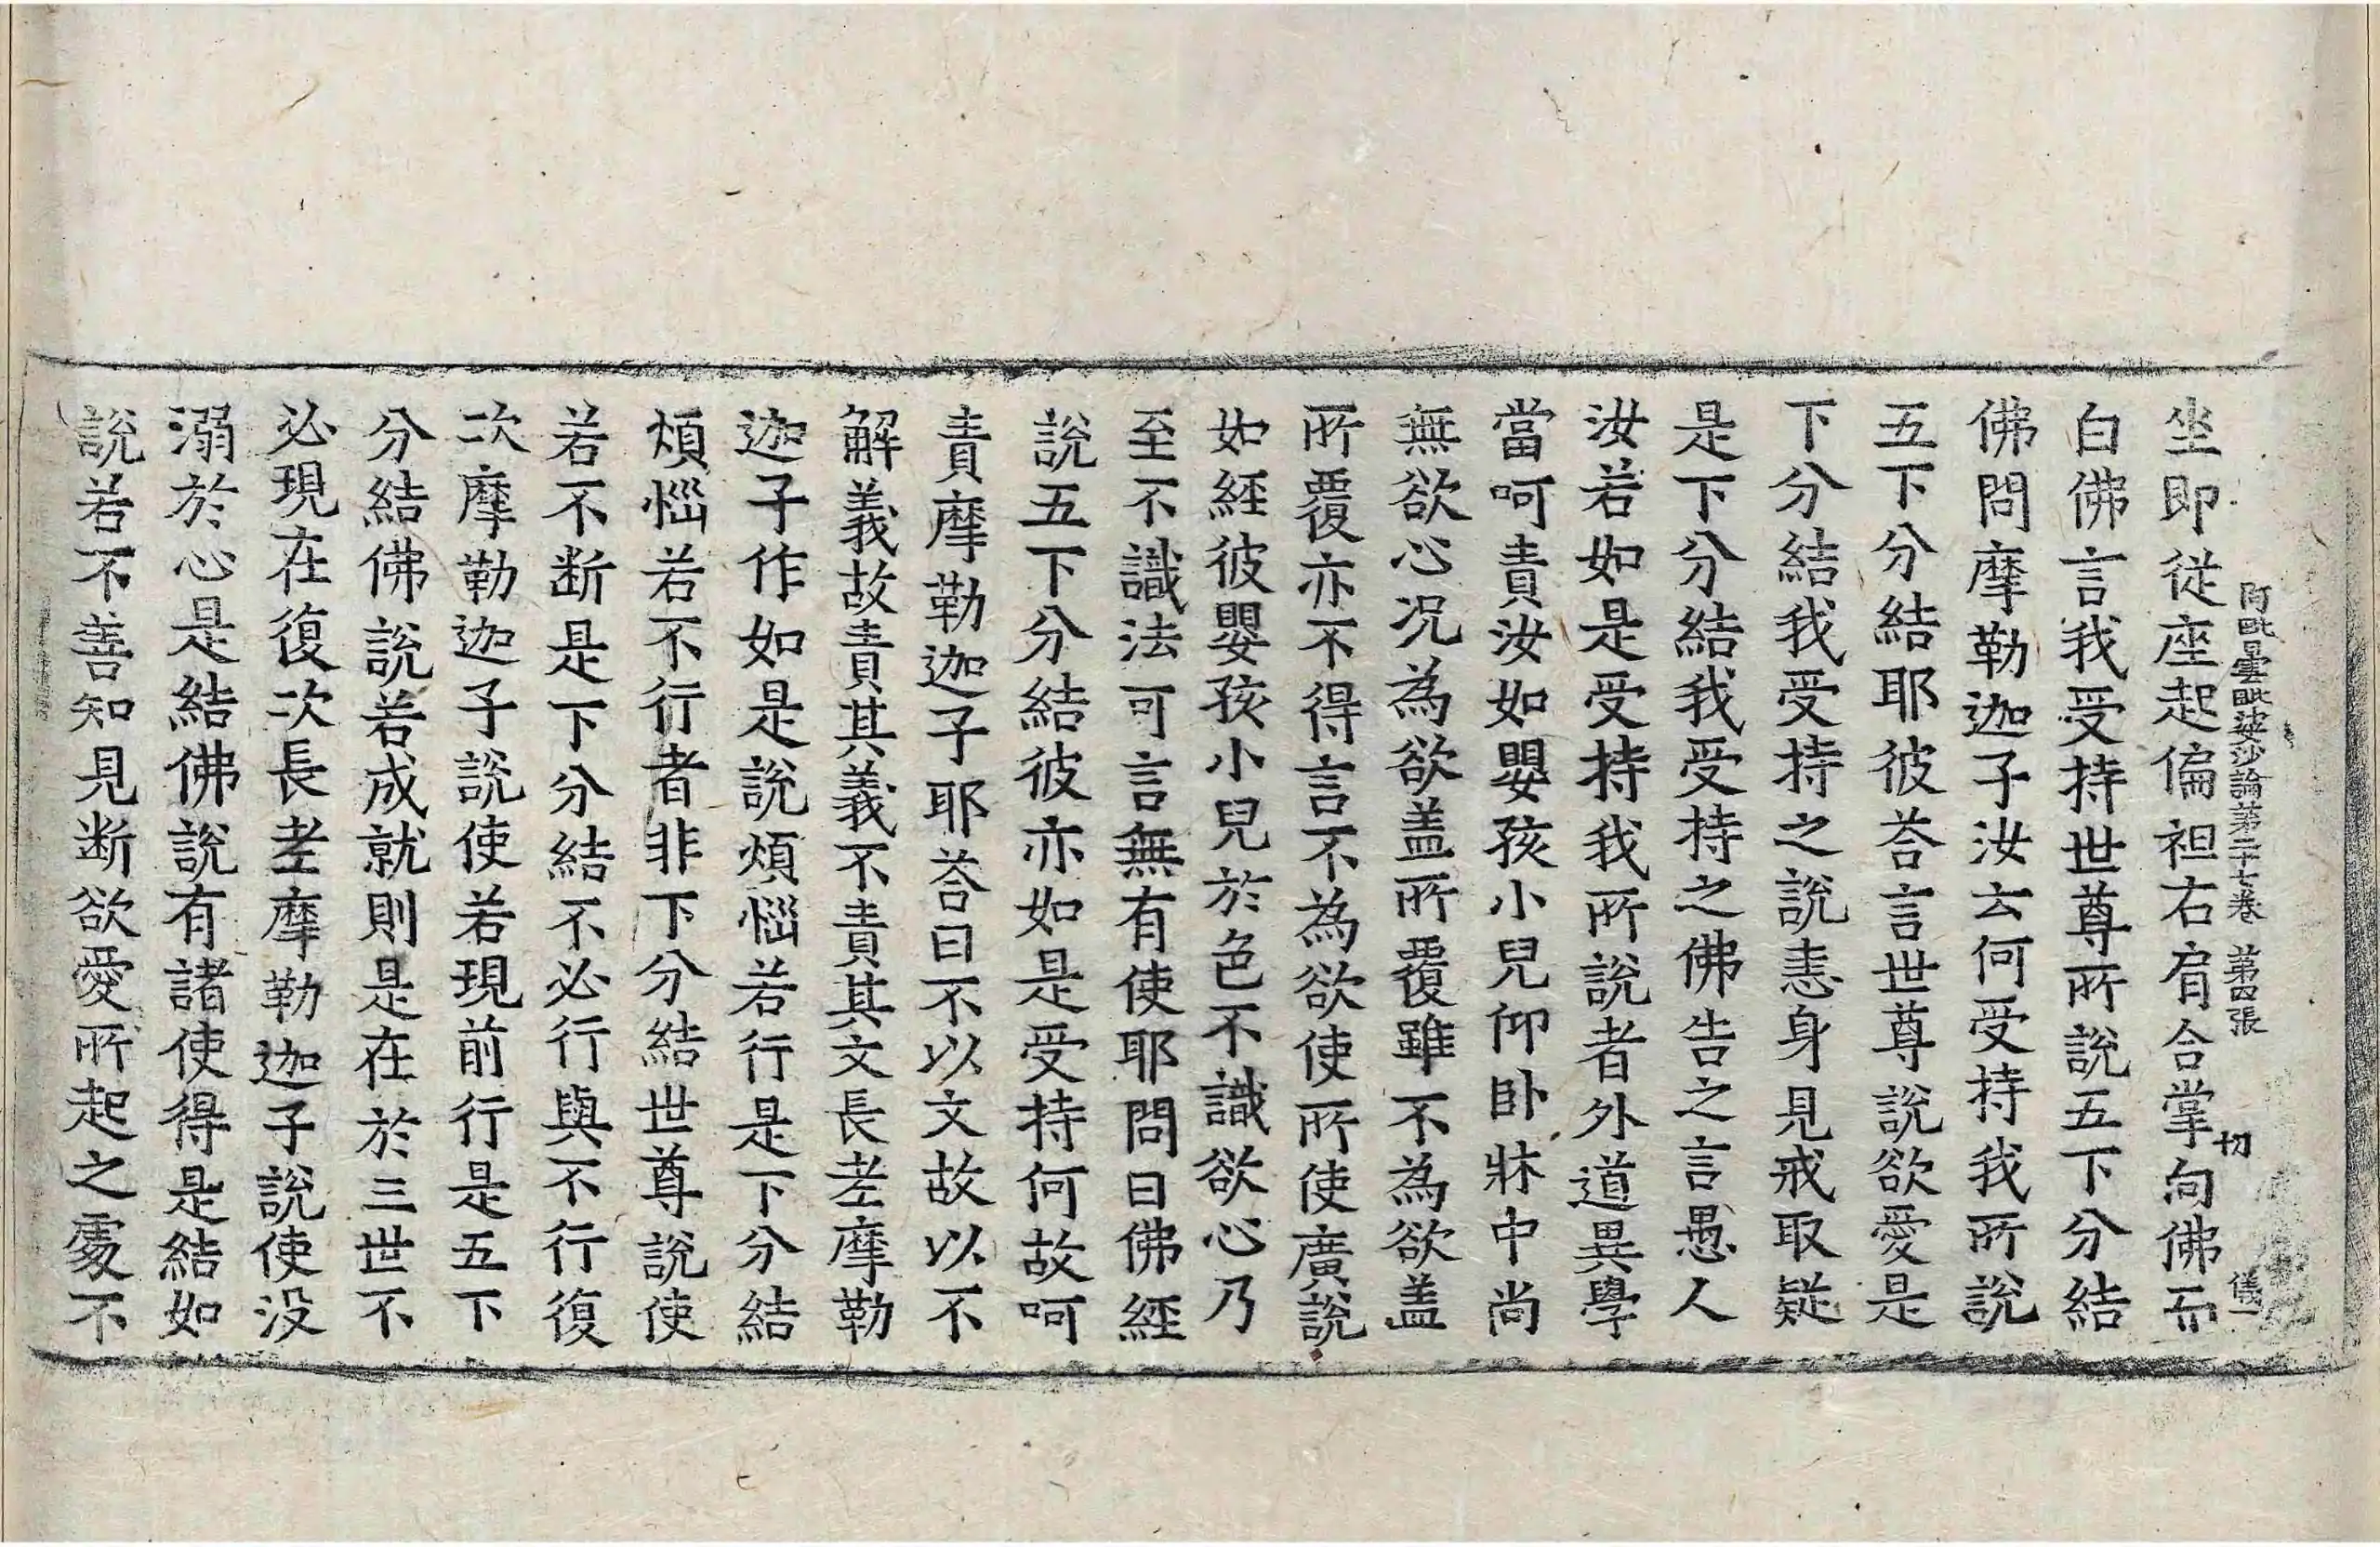 阿毗曇毗婆沙論第二十七卷 第四張 儀一
切
坐即從座起偏袒右肩合掌向佛而
白佛言我受持世尊所說五下分結
佛問摩勒迦子汝云何受持我所說
五下分結耶彼荅言世尊說欲愛是
下分結我受持之說恚身見戒取疑
是下分結我受持之佛告之言愚人
汝若如是受持我所說者外道異學
當呵責汝如嬰孩小兒仰卧牀中尚
無欲心况為欲盖所覆雖不為欲盖
所覆亦不得言不為欲使所使廣說
如經彼嬰孩小兒於色不識欲心乃
至不識法可言無有使耶問曰佛經
說五下分結彼亦如是受持何故呵
責摩勒迦子耶荅曰不以文故以不
解義故責其義不責其文長老摩勒
迦子作如是說煩惱若行是下分結
煩惱若不行者非下分結世尊說使
若不断是下分結不必行與不行復
次摩勒迦子說使若現前行是五下
分結佛說若成就則是在於三世不
必現在復次長老摩勒迦子說使没
溺於心是結佛說有諸使得是結如
說若不善知見断欲愛所起之處不